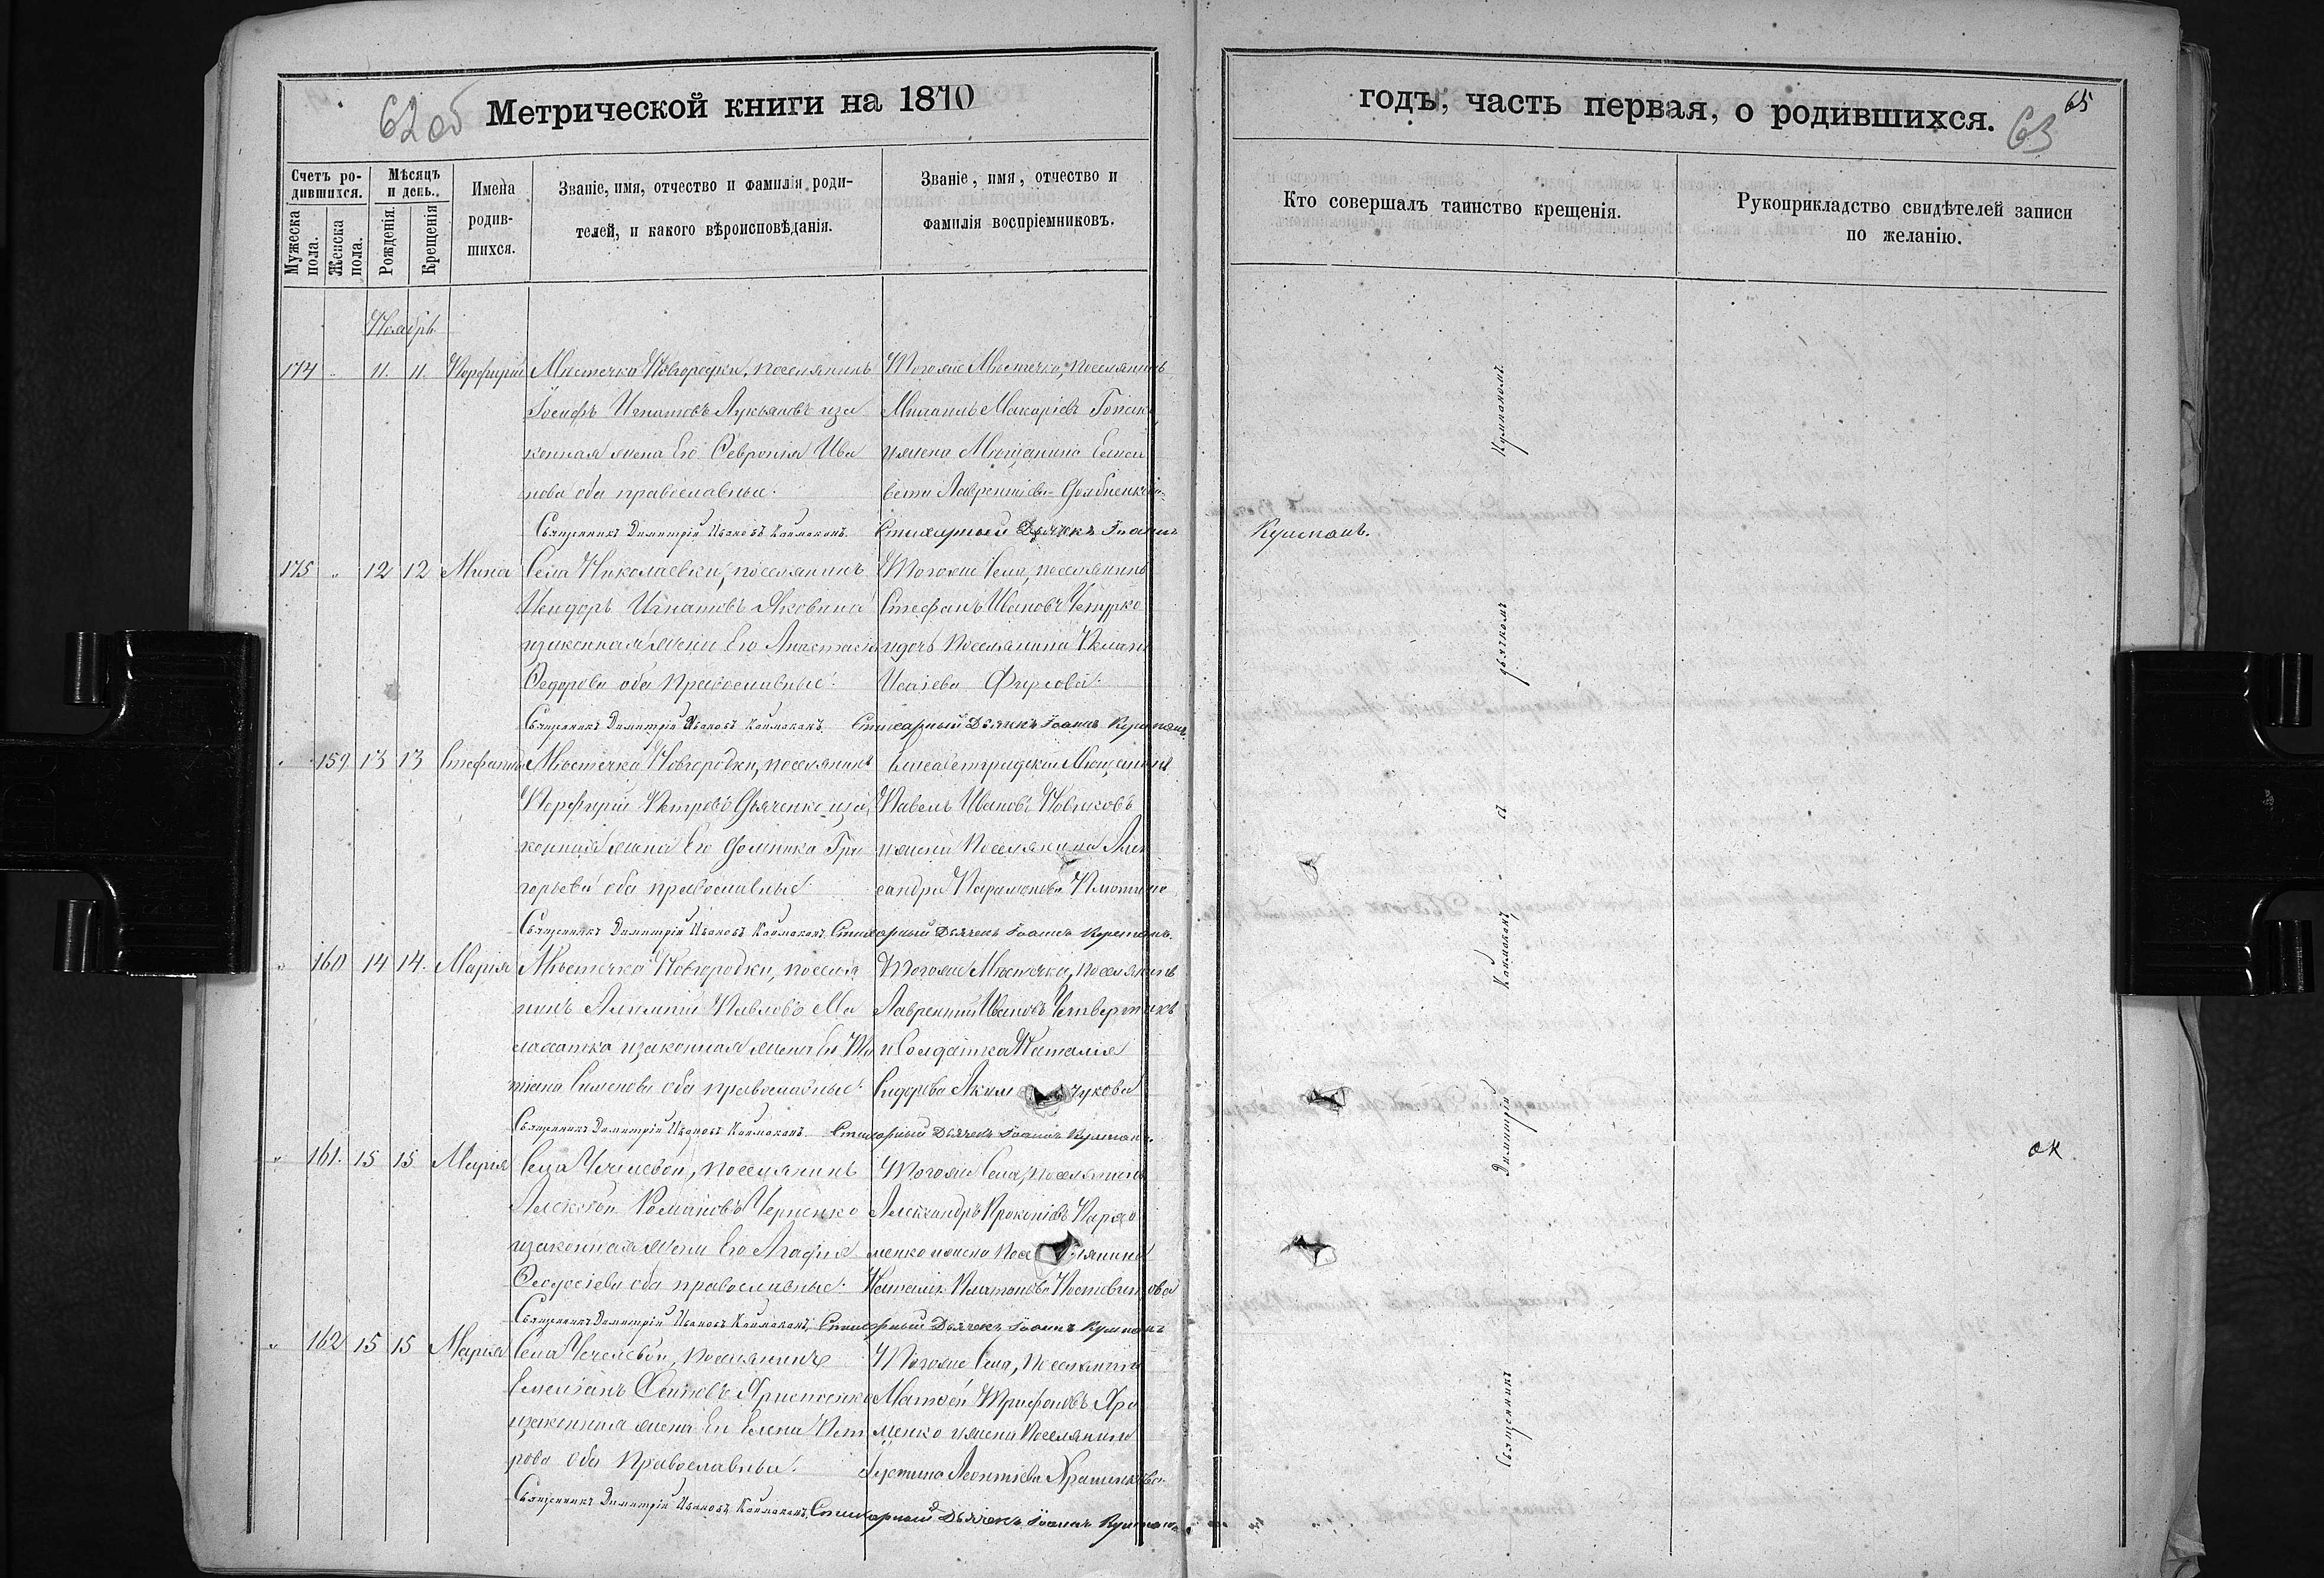 62 об Метрической книги на 1870
годъ, часть первая, о родившихся. 63 65
Счетъ ро-
дившихся.
Мужеска пола.
Женска пола.
Мѣсяцъ
и день.
Рожденія.
Крещенія
Имена
родив-
шихся.
Званіе, имя, отчество и фамилія роди-
телей, и какого вѣроисповѣданія.
Званіе, имя, отчество и
фамилія воспріемниковъ.
Кто совершалъ таинство крещенія.
Рукоприкладство свидѣтелей записи
по желанію.
Ноябрь
174 " 11. 11. Порфирій Мѣстечка Новгородки, поселянинъ
Іосифъ Игнатовъ Лукьяновъ иза
конная жена Его Ѳевронія Ива
нова оба православные.
Священникъ Димитрій Ивановъ Каймаканъ.
Тогоже Мѣстечка, поселянинъ
Михаилъ Макаріевъ
ижена Мѣщанина Елиса
вета Лаврентіева
Стихарный Дьячекъ Іоаннъ Кушманъ.
175 " 12 12 Мина Села Николаевки, поселянинъ
Исидоръ Игнатовъ Яковина
изаконная жена Его Анастасія
Ѳедорова оба Православные.
Священникъ Димитрій Ивановъ Каймаканъ.
Тогоже Села, поселянинъ
Стефанъ Ивановъ
идочь Поселянина
Исаіева Фирсова.
Стихарный Дьячекъ Іоаннъ Кушманъ.
" 159 13 13 Стефанида Мѣстечка Новгородки, поселянинъ
Порфирій Петровъ Дьяченко иза
конная жена Его Домника Гри
горьева оба православные.
Священникъ Димитрій Ивановъ Каймаканъ.
Елисаветградскій Мѣщанинъ
Павелъ Ивановъ Новиковъ
ижена Поселянина Алек
сандра Парамонова
Стихарный Дьячекъ Іоаннъ Кушманъ.
" 160 14 14. Марія Мѣстечка Новгородки, поселя
нинъ Алимпій Павловъ Ма
изаконная жена Его Та
тіана Симонова оба православные.
Священникъ Димитрій Ивановъ Каймаканъ.
Тогоже Мѣстечка, поселянинъ
Лаврентій Ивановъ Четвертакъ
и Солдатка Наталія
Сидорова Акимчукова
Стихарный Дьячекъ Іоаннъ Кушманъ.
" 161. 15 15 Марія Села Чечелевой, поселянинъ
Алексѣй Романовъ Черненко
изаконная жена Его Агафія
Ѳеодосіева оба православные.
Священникъ Димитрій Ивановъ Каймаканъ,
Тогоже Села, поселянинъ
Александръ Прокопіевъ Паря
менко ижена Поселянина
Наталія Платонова
Стихарный Дьячекъ Іоаннъ Кушманъ
" 162 15 15 Марія Села Чечелевой, поселянинъ
Емеліанъ
изаконная жена Его Елена Пет
рова оба Православные.
Священникъ Димитрій Ивановъ Каймаканъ,
Тогоже Села, Поселянинъ
Матѳей Трифоновъ Яре
менко ижена Поселянина
Іустина Леонтіева
Стихарный Дьячекъ Іоаннъ Кушманъ.
Священникъ Димитрій Каймаканъ, съ дьячкомъ Кушманомъ.
ок